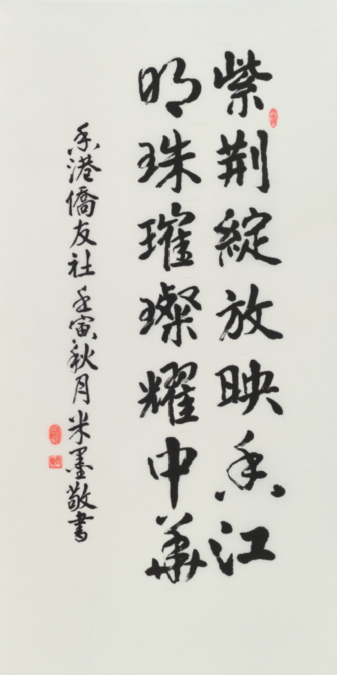 紫荆綻放映香江
明珠璀璨耀中華
香港僑友社 壬寅秋月 米墨敬書